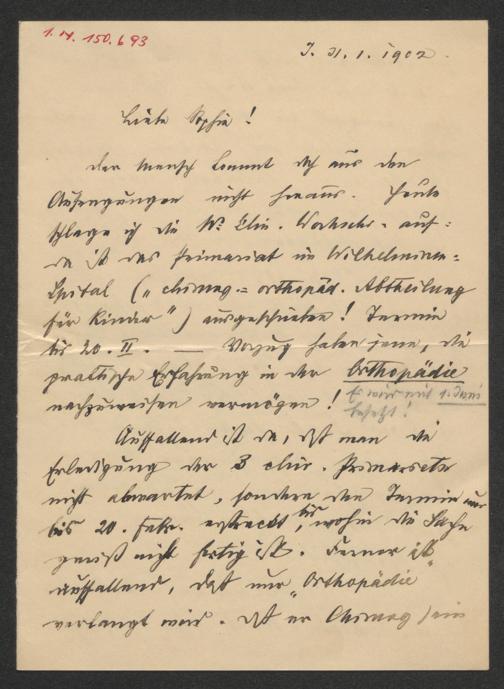 I. N. 150.693
J. 31. 1. 1902.
Liebe Sophie!
Der Mensch kommt doch aus den
Aufregungen nicht heraus. Heute
schlage ich die W. klin. Wochschr. auf:
da ist das Primariat im Wilhelminen-
Spital („chirurg.= orthopäd. Abtheilung
für Kinder") ausgeschrieben! Termin
bis 20. II. — Vorzug haben jene, die
praktische Erfahrung in der Orthopädie
nachzuweisen vermögen! Es wird mit 1. Juni
besetzt!
Auffallend ist da, dß man die
Erledigung der 3 chir. Primariate
nicht abwartet, sondern den Termin nur
bis 20. Febr. erstreckt, bis wohin die Sache
gewiß nicht fertig ist. Ferner ist
auffallend, daß nur „Orthopädie"
verlangt wird. Dß er Chirurg sein